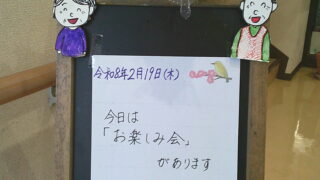 令和8年2月19日(木)
今日は
「お楽しみ会」
があります